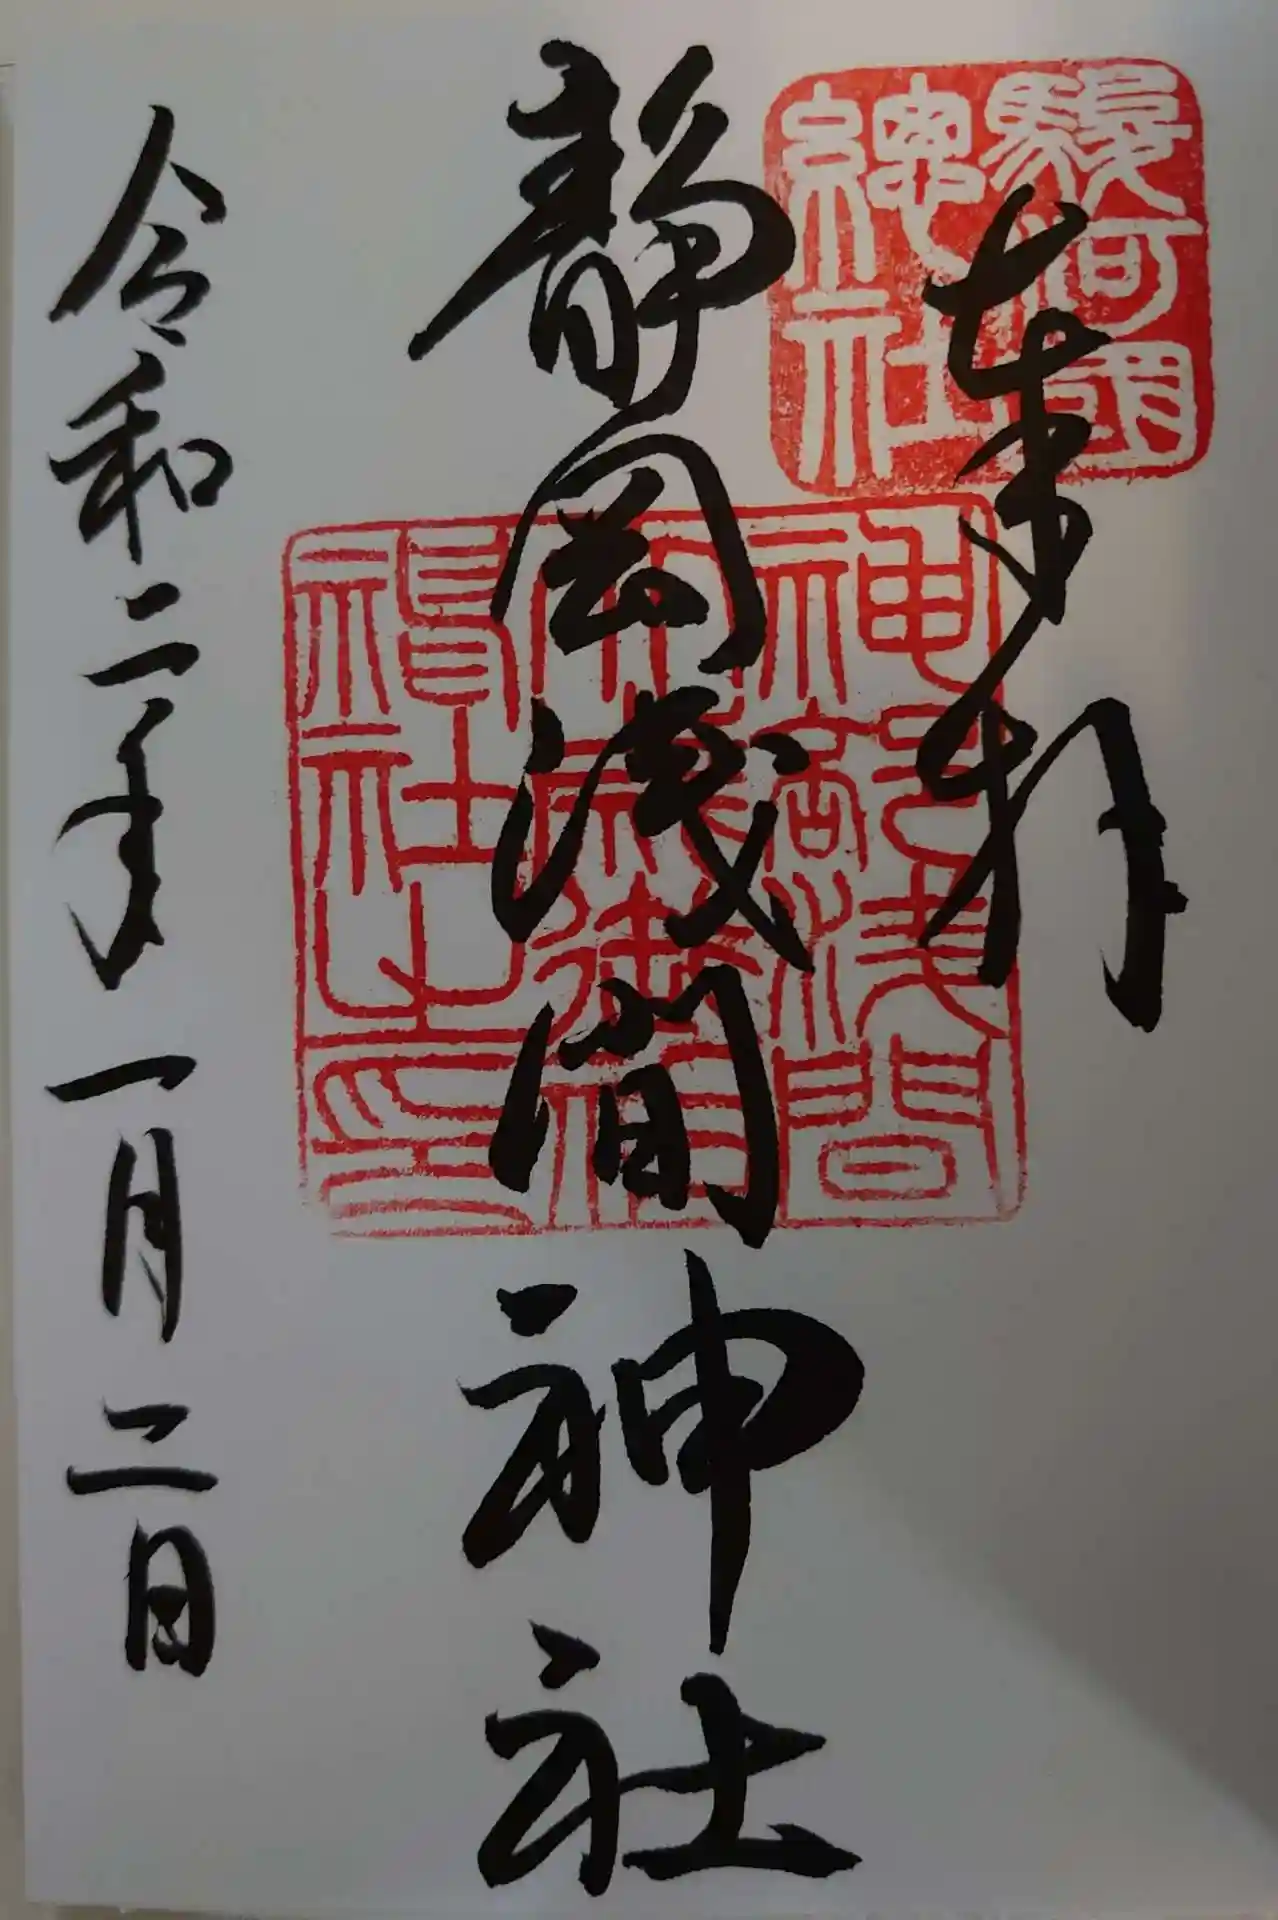 奉拝
駿河國
總社
静岡浅間神社
神部浅間
社之印
令和二年一月二日